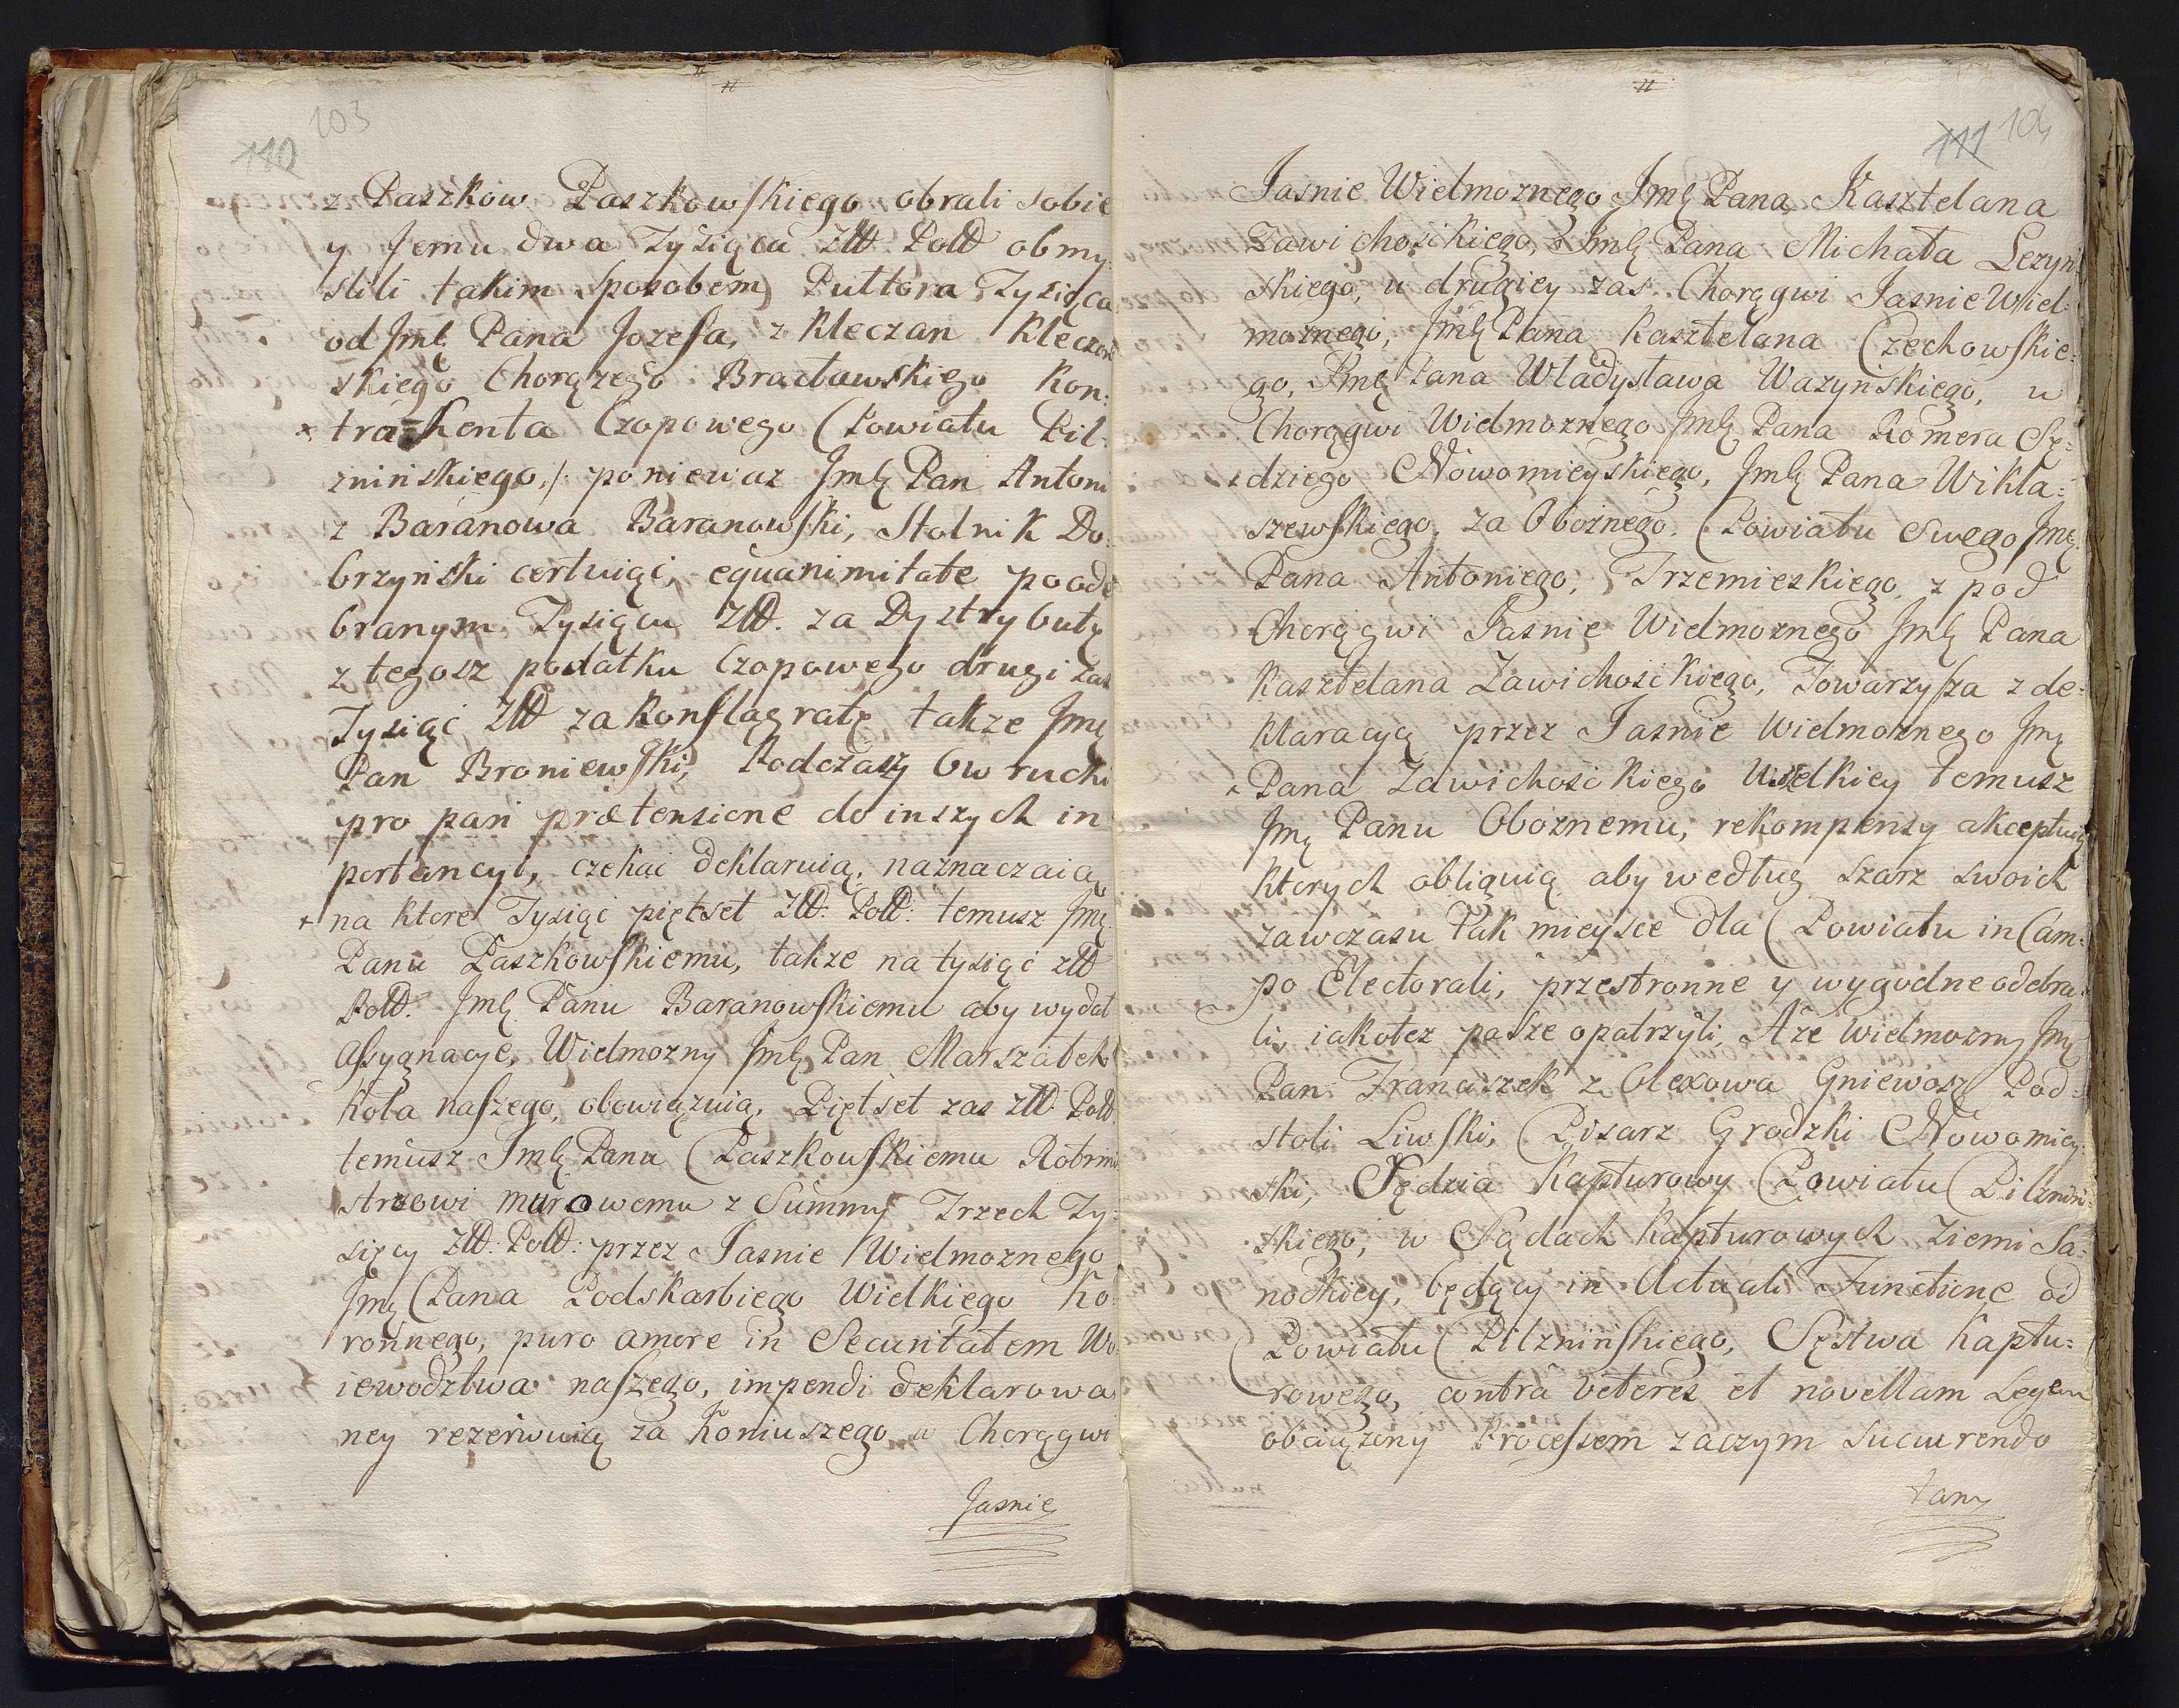 103
110
z Paszkow Paszkowskiego obrali sobie
y Jemu dwa Tysiąca Złł. Poll obmy,
slili takim sposobem Pułtora Tysiąca
od Jmę Pana Jozefa, z Kleczan Kleczow
skiego Chorązego Bracławskiego Kon:
trakenta Czopowego Powiatu Pil:
znińskiego, /: poniewaz Jmę Pan Antoni
z Baranowa Baranowski, Stolnik Do:
brzyński certuiąc, equanimitate po ode
branym Tysiącu Złł. za Dystrybutę
z tegosz podatku Czopowego drugi zas
Tysiąc Złł za Konflagratę takze Jmę
Pan Broniewski, Podczaszy Owrucki
pro pari prætensione do inszych in
portancyi, czekac deklaruią, naznaczaią,
na ktore Tysiąc piętset Złł: Poll: temusz Jmę
Panu Paszkowskiemu, takze na tysiąc złł
Poll. Jmę Panu Baranowskiemu aby wydał
Assygnacye, Wielmozny Jmę Pan Marszałek
Koła naszego, obowiązuią, Piętset zas złł Poll
temusz Jmę Panu Paszkowskiemu Rotmi
strzowi murowemu z Summy Trzech Ty:
sięcy Złł: Poll: przez Jasnie Wielmoznego
Jmę Pana Podskarbiego Wielkiego Ko
ronnego, puro amore in Securitatem Wo
iewodztwa naszego, impendi deklarowa
ney rezerwuią za Koniuszego w Chorągwi
Jasnie
111 104
Jasnie Wielmoznego Jmę Pana Kasztelana
Zawichosckiego, Jmę Pana Michała Lezyn
skiego, u drugiey zas Chorągwi Jasnie Wiel:
moznego, Jmę Pana Kasztelana Czechowskie:
go, Jmę Pana Władysława Wazyńskiego, u
Chorągwi Wielmoznego Jmę Pana Romera Sę:
dziego Nowomieyskiego, Jmę Pana Wikła:
szewskiego, za Oboznego Powiatu Swego Jmę
Pana Antoniego, Trzemieskiego, z pod
Chorągwi Jasnie Wielmoznego Jmę Pana
Kasztelana Zawichosckiego, Towarzysza z de:
klaracyą przez Jasnie Wielmoznego Jmę
Pana Zawichosckiego Wszelkiey temusz
Jmę Panu Oboznemu, rekompensy akceptuią
ktorych obliguią aby według szarz swoich
zawczasu tak mieysce dla Powiatu in Cam:
po Electorali, przestronne y wygodne odebra:
li, iakotez pasze opatrzyli, A ze Wielmozny Jmę
Pan Franciszek z Olexowa Gniewosz Pod:
stoli Liwski, Pisarz Grodzki Nowomiey:
ski, Sędzia Kapturowy Powiatu Pilzniń
skiego, w Sądach Kapturowych Ziemi Sa:
nockiey, będący in Actuali Functione od
Powiatu Pilznińskiego, Sęstwa Kaptu:
rowego, contra veteres et novellam Legem
obciązony Processem zaczym sucurrendo
tany